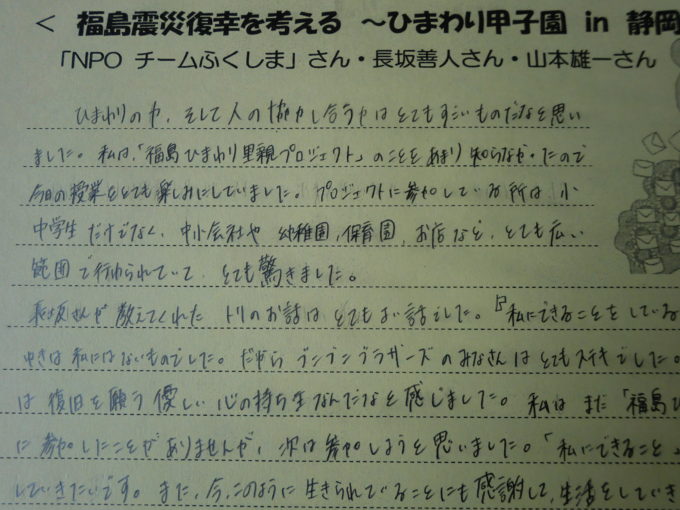 < 福島震災復幸を考える ～ひまわり甲子園 in 静岡
「NPO チームふくしま」さん・長坂善人さん・山本雄一さん
ひまわりの力、そして人の協力し合う力はとてもすごいものだなと思い
ました。私は、「福島ひまわり里親プロジェクト」のことをあまり知らなかったので
今日の授業をとても楽しみにしていました。プロジェクトに参加している所は、小
中学生だけでなく、中小会社や幼稚園、保育園、お店など、とても広い
範囲で行われていて、とても驚きました。
長坂さんが教えてくれたトリのお話はとてもよい話でした。「私にできることをしている
ゆきは私にはないものでした。だから ブンブンブラザーズのみなさんはとてもステキでした。
は復旧を願う優しい心の持ち主なんだなと感じました。私はまだ「福島ひ
に参加したことがありませんが、次は参加しようと思いました。「私にできること
していきたいです。また、今、このように生きられていることにも感謝して、生活をしていき